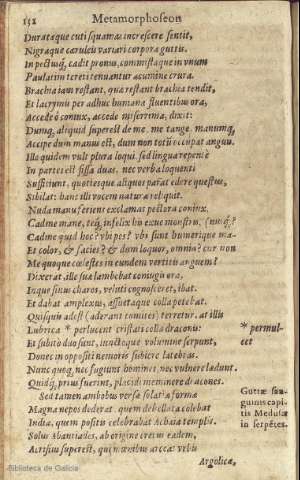 152 Metamorphoseon
Durataque cuti squamas increscere sentit,
Nigraque cæruleis variari corpora guttis.
In pectusq́; cadit pronus, commissaque in vnum
Paulatim tereti tenuantur acumine crura.
Brachia iam restant, quæ restant brachia tendit,
Et lacrymis per adhuc humana fluentibus ora,
Accede ô coniux, accede miserrima, dixit:
Dumq́; aliquid superest de me, me tange, manumq́;
Accipe dum manus est, dum non totũ occupat anguis.
Ille quidem vult plura loqui, sed lingua repentè
In partes est fissa duas, nec verba loquenti
Sufficiunt, quotiesque aliquos parat edere questus,
Sibilat: hanc illi vocem natura reliquit.
Nuda manu feriens exclamat pectora coniux.
Cadme mane, teq́; infelix his exue monstris.
Cadme quid hoc? vbi pes? vbi sunt humerique ma-
Et color, & facies? & dum loquor, omnia? cur non
Me quoque cælestes in eundem vertitis anguem?
Dixerat, ille suæ lambebat coniugis ora,
Inque sinus charos, veluti cognosceret, ibat.
Et dabat amplexus, assuetaque colla petebat.
Quisquis adest (aderant comites) terretur. at illis
Lubrica * perlucent cristati colla draconis: * permul-
Et subitò duo sunt, iunctoque volumine serpunt, cet
Donec in oppositi nemoris subiere latebras.
Nunc quoq́; nec fugiunt homines, nec vulnere lædunt.
Quidq́; prius fuerint, placidi meminere dracones.
Sed tamen ambobus versæ solatia formæ Guttæ san-
Magna nepos dederat, quem debellata colebat guinis capi-
India, quem positis celebrabat Achaia templis. tis Medusæ
Solus Abantiades, ab origine cretus eadem, in serpẽtes.
Acrisius superest, qui mœnibus arceat vrbis
Argolicæ,
Biblioteca de Galicia